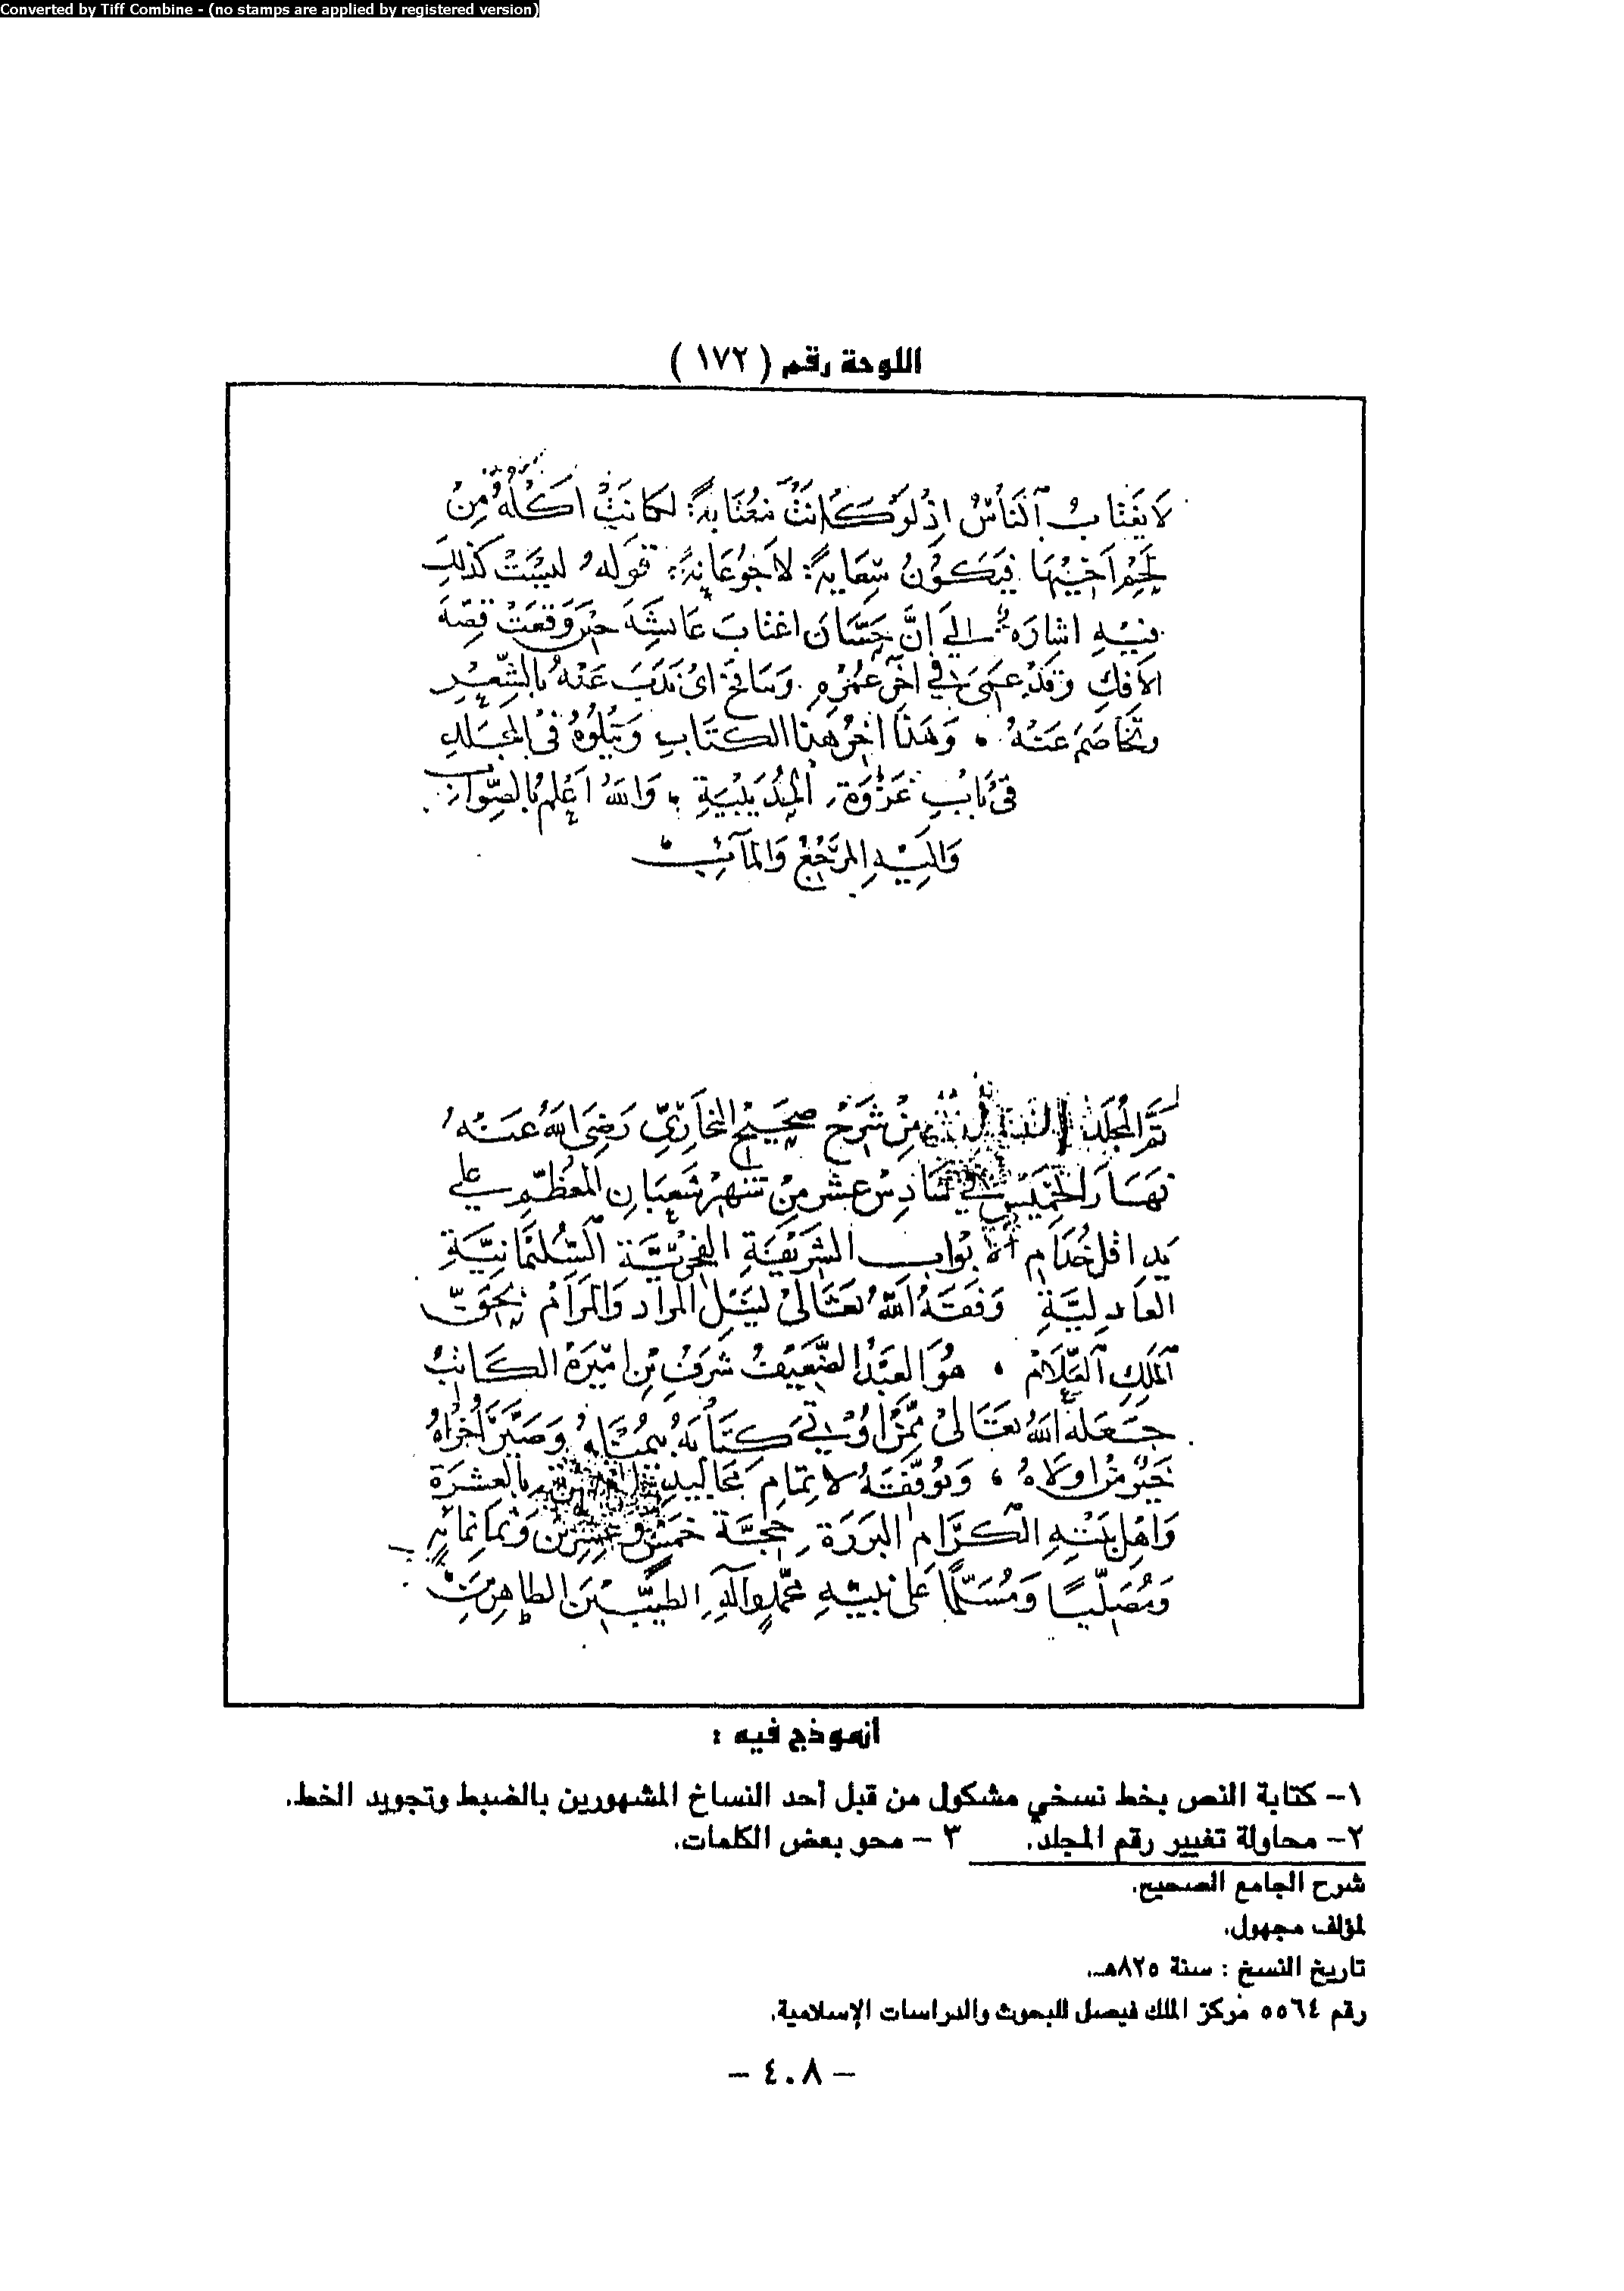 Converted by Tiff Combine - (no stamps are applied by registered version)
اللوحة رقم ( ١٧٢ )
لَا يَغْتَابُ النَّاسُ اِذْ لَوْ كَانَتْ مُغْتَابَةً لكَانَتْ اكلةً مِنْ
لَحْمِ اَخِيْهَا فيَكُوْنُ شبْعَانةً لا جَوْعَانةً قوله ليسَتْ كذلك
فِيْهِ اشارة الى اَنَّ حَسَّان اغتابَ عَائشَة حِيْنَ وَقعَتْ قصّة
الافك وَقدْ عَمىَ فى اخر عُمْرِهِ وَينَافح اىْ يَذبّ عَنْهُ بالشِّعْرِ
وَيخَاصَم عَنْهُ وَهَذا اخرُ هَذا الكتَاب وَيتلوهُ فى المجَلدِ
فى بَابِ غَزْوَةِ الحُدَيْبيَةِ وَاللهُ اَعْلَمُ بالصَّوَاب
وَاليْهِ المَرْجَعُ وَالمَآبُ
تَمَّ المُجَلّدُ مِنْ شَرْح صَحِيْح البخَارِيّ رَضِىَ اللهُ عَنْهُ
نهَارَ الخَمِيْسِ فِي سَادِسْ عشر مِنْ شَهْر شَعْبَان المُعَظّمِ على
يَدِ اقل خُدَّام الابْوابِ الشَرِيْفَةِ الفَخْرِيَّةِ السُّليْمَانيَّةِ
العَادِليَّةِ وَفقَهُ اللهُ تعَالىْ لنَيْل المُرَاد وَالمَرَامْ بحَقِّ
المَلِكِ العَلّامْ هُوَ العَبْدُ الضَّعِيْف شَرَف بن امِيْرَهْ الكَاتِبُ
جَعَلهُ اللهُ تعَالىْ مِمَّنْ اُوْتِي كتَابَهُ بيُمْنَاهُ وَصَيَّرَ اُخْرَاهُ
خَيْرٌ مِنْ اولاهُ وَيُوفّقهُ لاتمَام بالعَشرَة
وَاهْل بَيْتِهِ الكرَام البَرَرَة حِجَّة خَمْسٍ وعشرين وَثمانمَائهٍ
وَمُصَلّيًا وَمُسَلّمًا عَلى نبيّهِ مُحَمَّدٍ وَآلهِ الطيّبيْنَ الطاهِرِيْنَ
أنموذج فيه :
١- كتابة النص بخط نسخي مشكول من قبل أحد النساخ المشهورين بالضبط وتجويد الخط.
٢- محاولة تغيير رقم المجلد. ٣ - محو بعض الكلمات.
شرح الجامع الصحيح.
لمؤلف مجهول.
تاريخ النسخ : سنة ٨٢٥هـ.
رقم ٥٥٦٤ مركز الملك فيصل للبحوث والدراسات الإسلامية.
- ٤٠٨ -